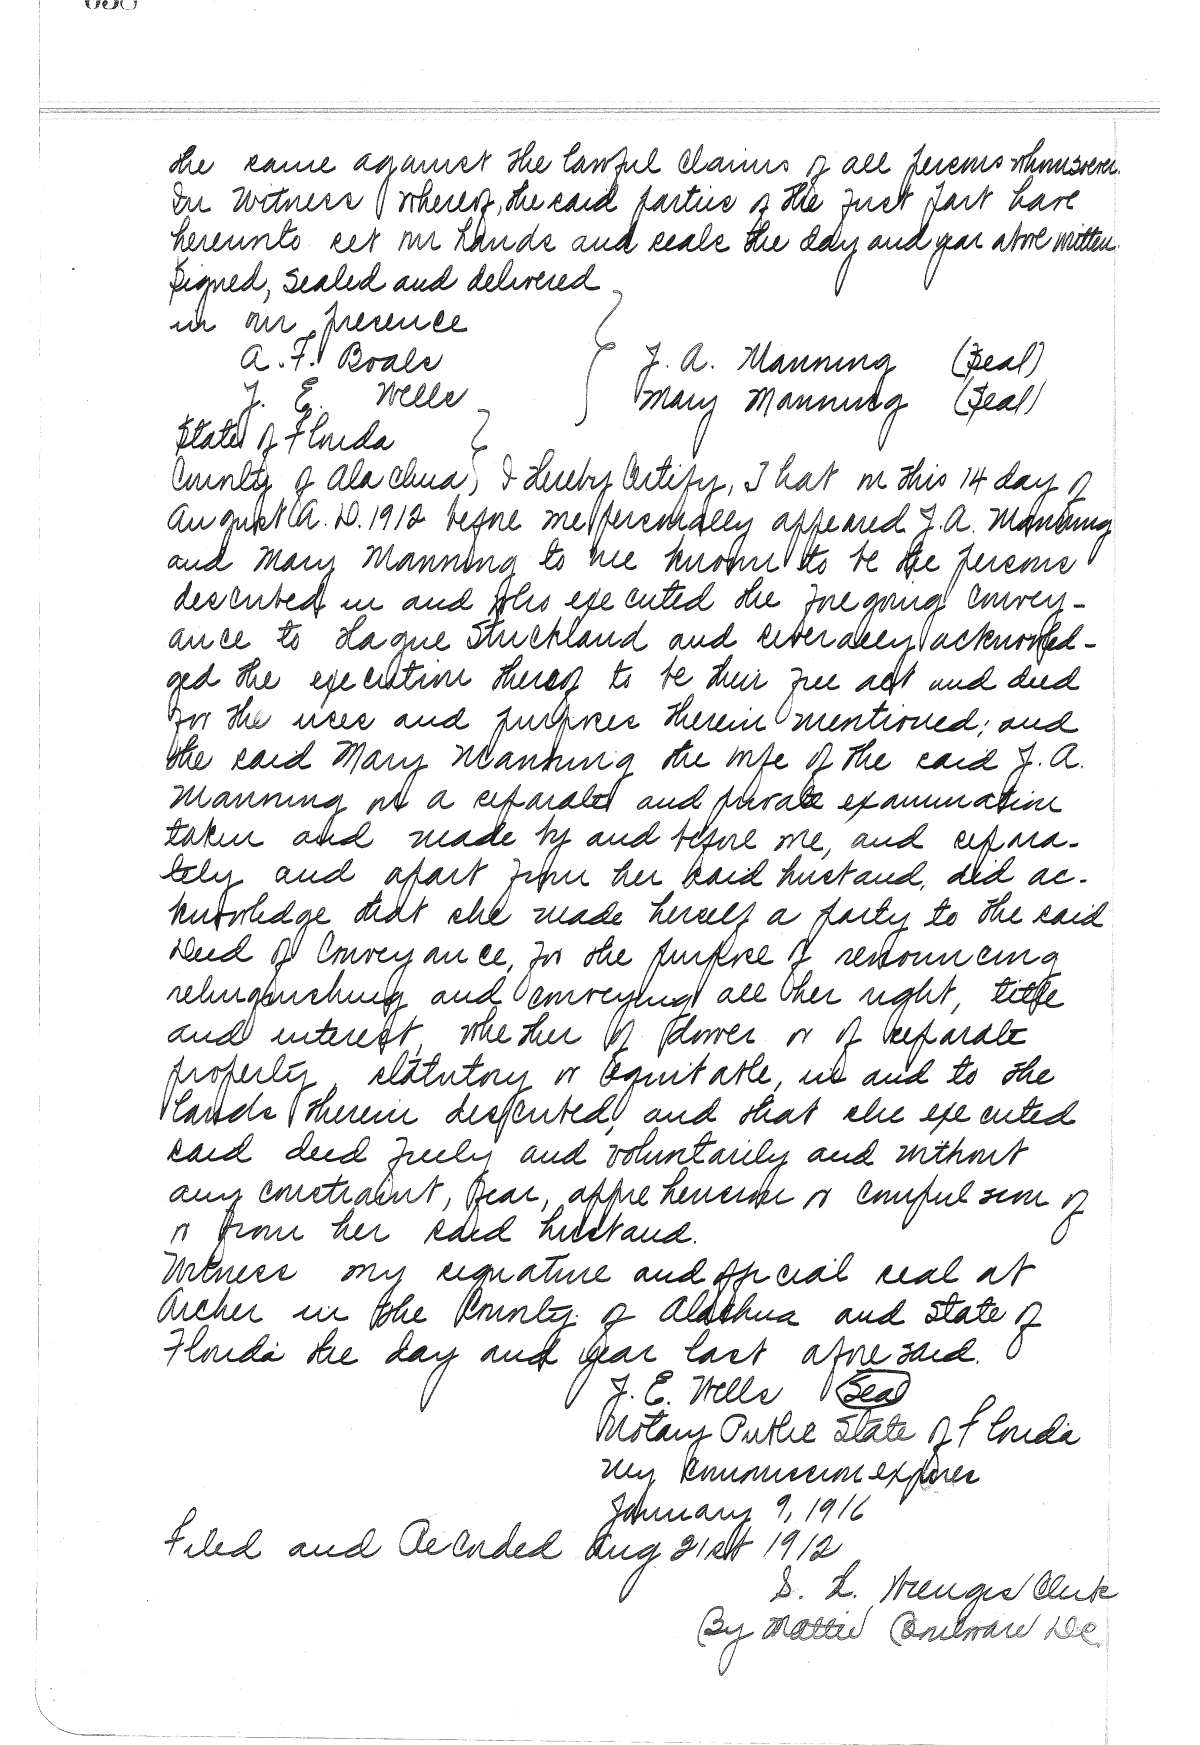 the same against the lawful claims of all persons whomsoever.
In Witness whereof, the said parties of the first part have
hereunto set our hands and seals the day and year above written.
Signed, sealed and delivered
in our presence
A. F. Boals
J. A. Manning (Seal)
J. E. Wells
Mary Manning (Seal)
State of Florida
County of Alachua) I hereby Certify, That on this 14 day of
August A. D. 1912 before me personally appeared J. A. Manning
and Mary Manning to me known to be the persons
described in and who executed the foregoing convey-
ance to Hague Strickland and severally acknowled-
ged the execution thereof to be their free act and deed
for the uses and purposes therein mentioned; and
the said Mary Manning the wife of the said J. A.
Manning on a separate and private examination
taken and made by and before me, and separa-
tely and apart from her said husband, did ac-
knowledge that she made herself a party to the said
Deed of Conveyance, for the purpose of renouncing
relinquishing and conveying all her right, title
and interest, whether of dower or of separate
property, statutory or equitable, in and to the
lands therein described, and that she executed
said deed freely and voluntarily and without
any constraint, fear, apprehension or compulsion of
or from her said husband.
Witness my signature and official seal at
Archer in the County of Alachua and State of
Florida the day and year last aforesaid.
J. E. Wells Seal
Notary Public State of Florida
My Commission expires
January 9, 1916
Filed and Recorded Aug 21st 1912
S. H. Wienges Clerk
By Mattie D.C.